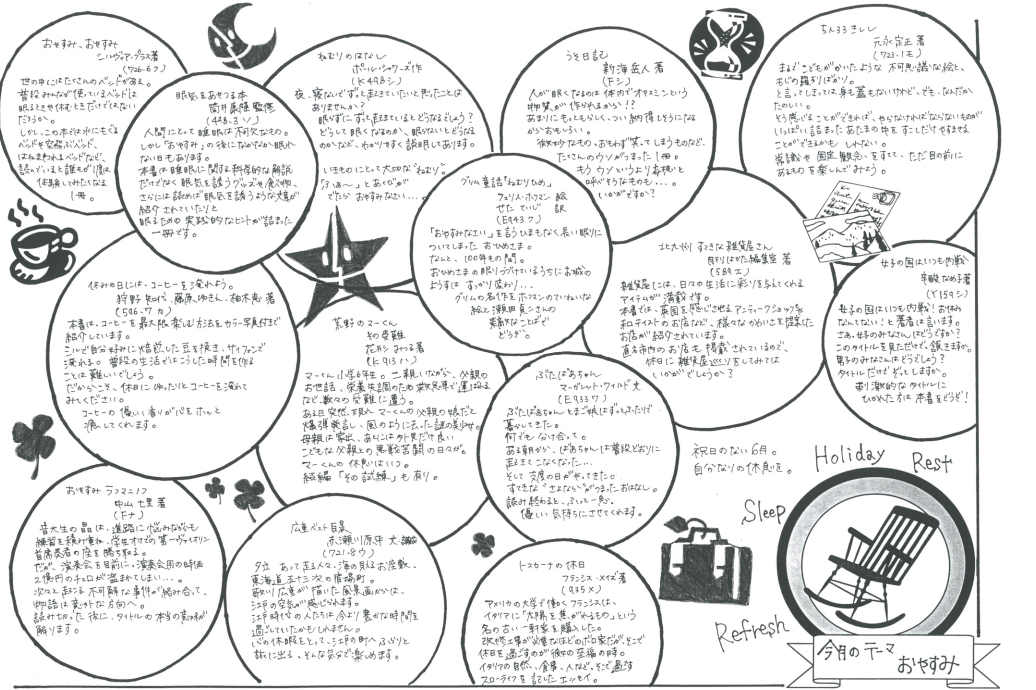 おやすみ、おやすみ
シルヴィア・プラス著
(726.6プ)
世の中にはたくさんのベッドがある。
普段みんなが使っているベッドは
眠るときや休むときだけではない
だろうか。
しかし、この本では水にもぐる
ベッドや空飛ぶベッド、
はねまわれるベッドなど、
読んでいると誰もが1度は
体験してみたくなる
1冊。
眠気をあやつる本
筒井康隆 監修
(498.3ソ)
人間にとって睡眠は不可欠なもの。
しかし「おやすみ」の後になかなか眠れ
ない日もあります。
本書は睡眠に関する科学的な解説
だけでなく眠気を誘うグッズや食べ物、
さらには読めば眠気を誘うような文章が
紹介されていたりと
眠るための実践的なヒントが詰まった
一冊です。
ねむりのはなし
ポール・シャワーズ作
(K498シ)
夜、寝ないでずっと起きていたいと思ったことは
ありませんか?
眠らずにずっと起きているとどうなるでしょう?
どうして眠くなるのか、眠らないとどうなる
のかなど、わかりやすく説明しあります。
いきものにとって大切な“ねむり”。
「ふぁ〜」とあくびが
でたら おやすみなさい…。
うそ日記
新海岳人 著
(Fシ)
人が眠くなるのは体内でオヤスミンという
物質が作られるから!?
あまりにもっともらしく、つい納得しそうになる
からおもしろい。
微妙なもの、おもわず笑ってしまうものなど、
たくさんのウソがつまった1冊。
もうウソというより妄想と
呼べそうなものも…。
いかがですか?
ちんろろきしし
元永定正 著
(723.1モ)
まるでこどもがかいたような不思議な絵と、
もじの羅列ばかり。
と言ってしまっては身も蓋もないけれど、でも、なんだか
たのしい。
そう感じることができれば、やらなければならないものが
いっぱい詰まったあたまの中をすこしだけやすませる
ことができるかもしれない。
常識や固定観念をすてて、ただ目の前に
あるものを楽しんでみよう。
グリム童話「ねむりひめ」
フェリクス・ホフマン 絵
せた ていじ 訳
(E943ク)
「おやすみなさい」を言うひまもなく長い眠りに
ついてしまったおひめさま。
なんと、100年もの間。
おひめさまの眠りつづけているうちにお城の
ようすはすっかり変わり…。
グリムの名作をホフマンのていねいな
絵と瀬田貞二さんの
素朴なことばで
どうぞ。
休みの日には、コーヒーを淹れよう。
狩野知代、藤原ゆきえ、柚木恵 著
(596.7カ)
本書は、コーヒーを最大限楽しむ方法をカラー写真付きで
紹介しています。
シルで自分好みに焙煎した豆を挽き、サイフォンで
淹れる。普段の生活ではこうした時間を作る
ことは難しいでしょう。
だからこそ、休日にゆったりとコーヒーを淹れて
みてください。
コーヒーの優しい香りが心をホッと
癒してくれます。
荒野のマーくん
その受難
花形みつる著
(K913ハ)
マーくん小学6年生。二親いながら、父親の
お世話、栄養失調のため救急車で運ばれる
など、数々の受難に遭う。
ある日突然、現れマーくんの父親の娘だと
爆弾発言し、風のように去った謎の美少女。
母親は家出、あらには外見だけ良い
こどもな父親との悪戦苦闘の日々が。
マーくんの休息はいつ?
続編「その試練」も有り。
北九州 すてきな雑貨屋さん
月刊はかた編集室 著
(589エ)
雑貨屋には、日々の生活に彩りを与えてくれる
アイテムが満載です。
本書では、英国を感じさせるアンティークショップや
和テイストのお店など、様々なかわいさを提案した
お店が紹介されています。
直方市内のお店も掲載されているので、
休日に雑貨屋巡りをしてみては
いかがでしょうか?
女子の国はいつも内戦
辛酸なめ子著
(Y159シ)
女子の国はいつも内戦!お休み
なんてない!と著者は言います。
さあ、女子のみなさんはどうですか?
このタイトルを見ただけで、頷きますか。
男子のみなさんはどうでしょう?
タイトルだけで、ぞっとしますか。
刺激的なタイトルに
ひかれた方は本書をどうぞ!
ぶたばあちゃん
マーガレット・ワイルド 文
(E933ワ)
ぶたばあちゃんとまご娘はずっとふたりで
暮らしてきた。
何でも分け合って。
ある朝から、ばあちゃんは普段どおりに
起きてこなくなった…
そして支度の日がやってきた。
すてきな“さよなら”がつまったおはなし。
読み終わると、ふっと一息。
優しい気持ちにさせてくれます。
おやすみ ラフマニノフ
中山七里 著
(Fナ)
音大生の晶は、進路に悩みながらも
練習を積み重ね、学生オケの第一ヴァイオリン
首席奏者の座を勝ち取る。
だが、演奏会を目前に、演奏会用の時価
2億円のチェロが盗まれてしまい…。
次々と起こる不可解な事件が絡み合って、
物語は意外な方向へ。
読み切った後に、タイトルの本当の意味が
解ります。
広重ベスト百景
赤瀬川原平 文・編
(721.8ウ)
夕立 あって走る人々、海の見えるお座敷、
東海道五十三次の宿場町。
歌川広重が描いた風景画からは、
江戸の空気が感じられます。
江戸時代の人たちは今より豊かな時間を
過ごしていたかもしれません。
心の休暇をとって、江戸の町へふらりと
旅に出る、そんな気分で楽しめます。
トスカーナの休日
フランシス・メイズ著
(935メ)
アメリカの大学で働くフランシスは、
イタリアに「太陽を焦がれるもの」という
名の古い一軒家を購入した。
改修工事が必要なほどのボロ家だが、そこで
休日を過ごすのが彼女の至福の時。
イタリアの自然、食事、人など、そこで過ごす
スローライフを記したエッセイ。
祝日のない6月。
自分なりの休息を。
Holiday
Rest
Sleep
Refresh
今月のテーマ
おやすみ